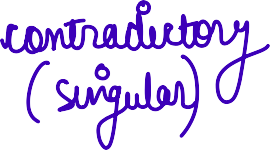 contradictory
(singular)